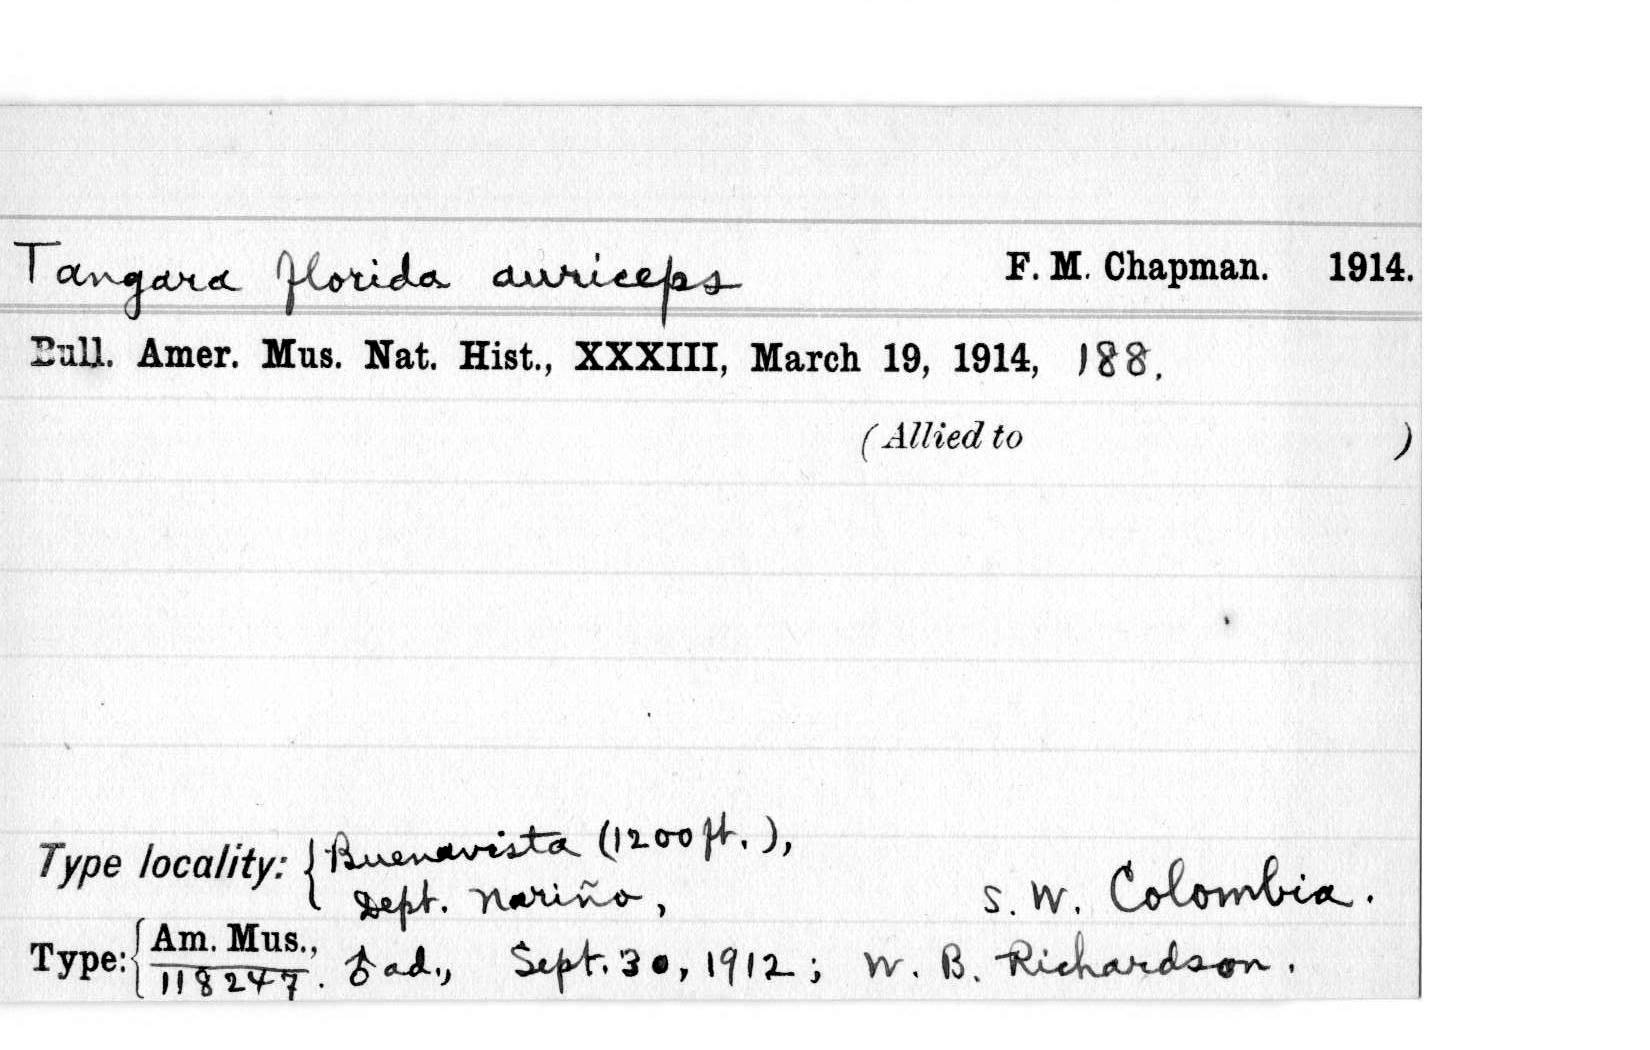 Tangara florida auriceps F. M. Chapman. 1914.
Bull. Amer. Mus. Nat. Hist., XXXIII, March 19, 1914, 188.
(Allied to )
Type locality: { Buenavista (1200 ft.),
Dept. Nariño, S. W. Colombia.
Type: { Am. Mus., 118247. ♂ ad., Sept. 30, 1912; W. B. Richardson.